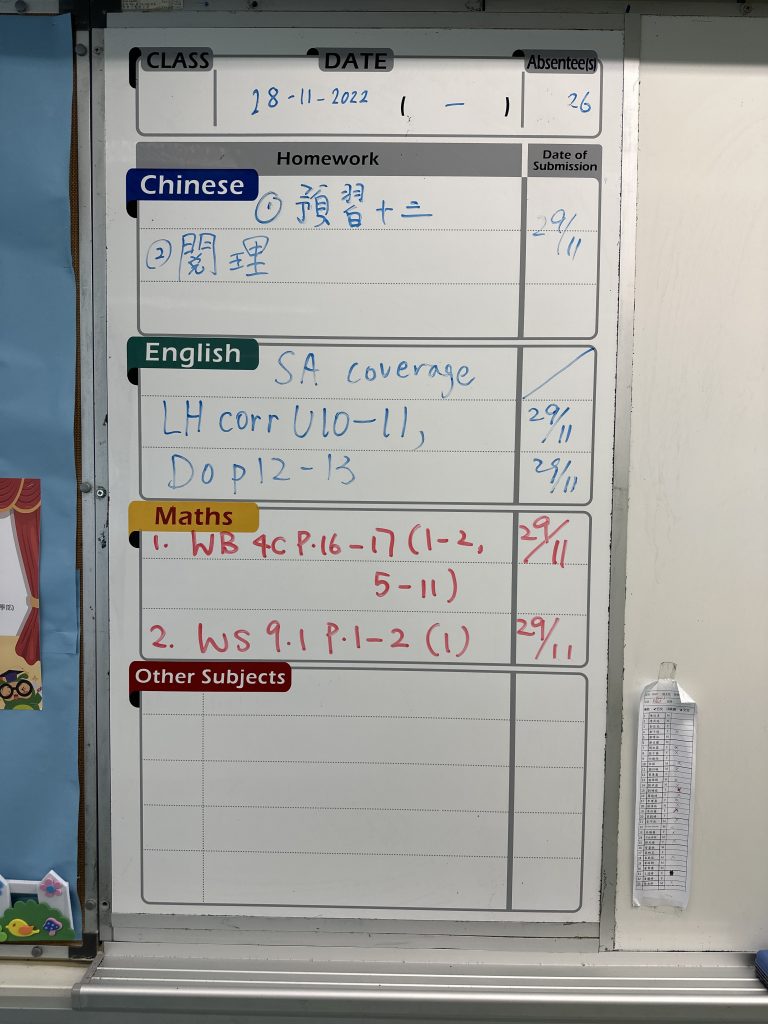 CLASS DATE Absentee(s)
28-11-2022 ( 一 ) 26
Homework Date of Submission
Chinese
① 預習十二 29/11
② 閱理
English
SA coverage
LH corr U10-11, 29/11
Do p12-13 29/11
Maths
1. WB 4C P.16-17 (1-2, 29/11
5-11)
2. WS 9.1 P.1-2 (1) 29/11
Other Subjects